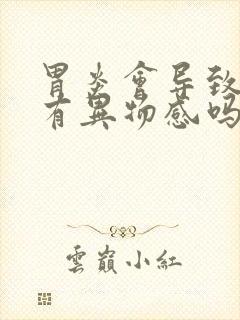 胃炎會导致
有異物感吗
雲巔小紅